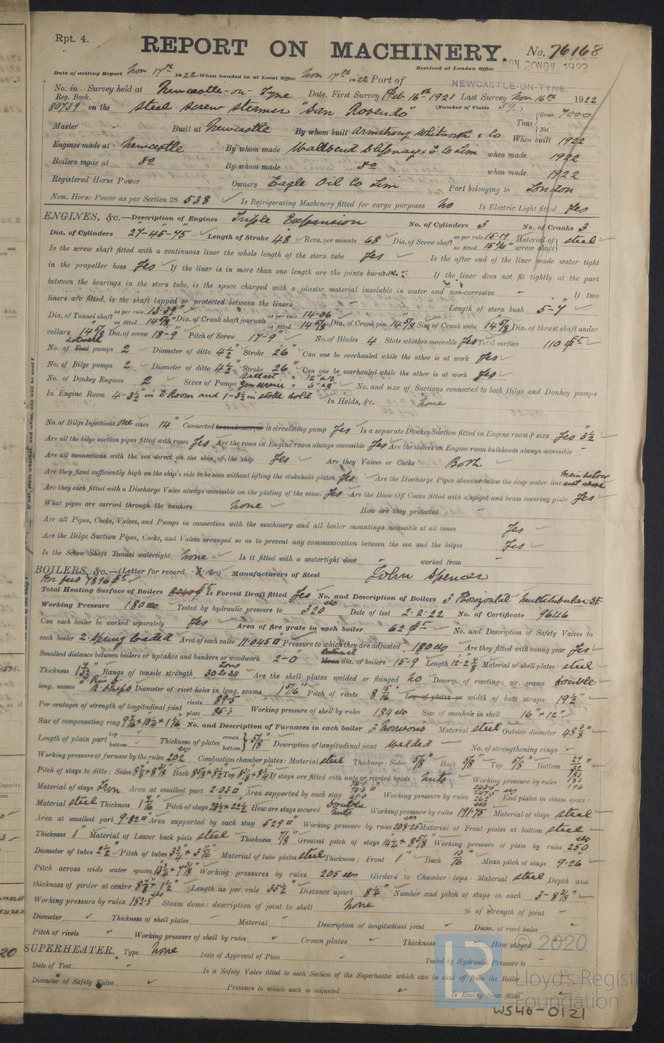 Rpt. 4.
REPORT ON MACHINERY.
No. 76168
Date of writing Report Nov 17th 1922 When handed in at Local Office Nov 17th 1922 Port of NEWCASTLE-ON-TYNE
Received at London Office MON 20 NOV 1922
No. in Survey held at Newcastle-on-Tyne Date, First Survey Feb 16th 1921 Last Survey Nov 16th 1922
Reg. Book.
80739 on the Steel Screw Steamer "San Rosendo" (Number of Visits
Tons Gross 7000
Net
Master Built at Newcastle By whom built Armstrong Whitworth & Co When built 1922
Engines made at Newcastle By whom made Wallsend Slipway & Co Lim when made 1922
Boilers made at do By whom made do when made 1922
Registered Horse Power Owners Eagle Oil Co Lim Port belonging to London
Nom. Horse Power as per Section 28 538 Is Refrigerating Machinery fitted for cargo purposes No Is Electric Light fitted Yes
ENGINES, &c.—Description of Engines Triple Expansion No. of Cylinders 3 No. of Cranks 3
Dia. of Cylinders 27-45-75 Length of Stroke 48 Revs. per minute 68 Dia. of Screw shaft as per rule 15.19 as fitted Material of screw shaft steel
Is the screw shaft fitted with a continuous liner the whole length of the stern tube Yes Is the after end of the liner made water tight
in the propeller boss Yes If the liner is in more than one length are the joints burned If the liner does not fit tightly at the part
between the bearings in the stern tube, is the space charged with a plastic material insoluble in water and non-corrosive If two
liners are fitted, is the shaft lapped or protected between the liners Length of stern bush 5-7
Dia. of Tunnel shaft as per rule 13.39 as fitted 14 5/8 Dia. of Crank shaft journals as per rule 14.06 as fitted 14 5/8 Dia. of Crank pin 14 5/8 Size of Crank webs Dia. of thrust shaft under
collars 14 5/8 Dia. of screw 18-9 Pitch of Screw 17-9 No. of Blades 4 State whether moveable Yes Total surface 110
No. of pumps 2 Diameter of ditto 4½ Stroke 26 Can one be overhauled while the other is at work Yes
No. of Bilge pumps 2 Diameter of ditto 4½ Stroke 26 Can one be overhauled while the other is at work Yes
No. of Donkey Engines 2 Sizes of Pumps No. and size of Suctions connected to both Bilge and Donkey pumps
In Engine Room 4-3½ in E Room and 1-3½ in stoke hold In Holds, &c. None
No. of Bilge Injections one sizes 14" Connected to circulating pump Yes Is a separate Donkey Suction fitted in Engine room & size Yes 3½
Are all the bilge suction pipes fitted with roses Yes Are the roses in Engine room always accessible Yes Are the sluices on Engine room bulkheads always accessible
Are all connections with the sea direct on the skin of the ship Yes Are they Valves or Cocks Both
Are they fixed sufficiently high on the ship's side to be seen without lifting the stokehold plates Yes Are the Discharge Pipes above or below the deep water line
Are they each fitted with a Discharge Valve always accessible on the plating of the vessel Yes Are the Blow Off Cocks fitted with a spigot and brass covering plate Yes
What pipes are carried through the bunkers None How are they protected
Are all Pipes, Cocks, Valves, and Pumps in connection with the machinery and all boiler mountings accessible at all times Yes
Are the Bilge Suction Pipes, Cocks, and Valves arranged so as to prevent any communication between the sea and the bilges Yes
Is the Screw Shaft Tunnel watertight None Is it fitted with a watertight door worked from
BOILERS, &c.—(Letter for record) Manufacturers of Steel John Spencer
Total Heating Surface of Boilers Is Forced Draft fitted Yes No. and Description of Boilers 3 Horizontal Multitubular SE
Working Pressure 180 Tested by hydraulic pressure to 320 Date of test 2.2.22 No. of Certificate 9646
Can each boiler be worked separately Yes Area of fire grate in each boiler 62 No. and Description of Safety Valves to
each boiler 2 Spring loaded Area of each valve 11.045 Pressure to which they are adjusted 180 Are they fitted with easing gear Yes
Smallest distance between boilers or uptakes and bunkers or woodwork 2-0 dia. of boilers 15-9 Length Material of shell plates steel
Thickness Range of tensile strength Are the shell plates welded or flanged no Descrip. of riveting: cir. seams double
long. seams Diameter of rivet holes in long. seams Pitch of rivets width of butt straps 19½
Per centages of strength of longitudinal joint rivets 89.5 plate 85.3 Working pressure of shell by rules 184 Size of manhole in shell 16" × 12"
Size of compensating ring No. and Description of Furnaces in each boiler 3 Morisons Material steel Outside diameter
Length of plain part top bottom Thickness of plates crown bottom Description of longitudinal joint welded No. of strengthening rings
Working pressure of furnace by the rules 202 Combustion chamber plates: Material steel Thickness: Sides Back Top Bottom
Pitch of stays to ditto: Sides Back Top If stays are fitted with nuts or riveted heads nuts Working pressure by rules
Material of stays Iron Area at smallest part 2.03 Area supported by each stay Working pressure by rules End plates in steam space:
Material steel Thickness Pitch of stays How are stays secured double nuts Working pressure by rules Material of stays steel
Area at smallest part 9.82 Area supported by each stay 529 Working pressure by rules Material of Front plates at bottom steel
Thickness 1" Material of Lower back plate steel Thickness Greatest pitch of stays Working pressure of plate by rules 250
Diameter of tubes 2½ Pitch of tubes Material of tube plates steel Thickness: Front 1" Back Mean pitch of stays 9.26
Pitch across wide water spaces Working pressures by rules 205 Girders to Chamber tops: Material steel Depth and
thickness of girder at centre Length as per rule Distance apart Number and pitch of stays in each
Working pressure by rules 182.5 Steam dome: description of joint to shell None % of strength of joint
Diameter Thickness of shell plates Material Description of longitudinal joint Diam. of rivet holes
Pitch of rivets Working pressure of shell by rules Crown plates Thickness How stayed
SUPERHEATER. Type None Date of Approval of Plan Tested by Hydraulic Pressure to
Date of Test Is a Safety Valve fitted to each Section of the Superheater which can be shut off from the Boiler
Diameter of Safety Valve Pressure to which each is adjusted Is Easing Gear fitted
© 2020
Lloyd's Register
Foundation
W546-0121